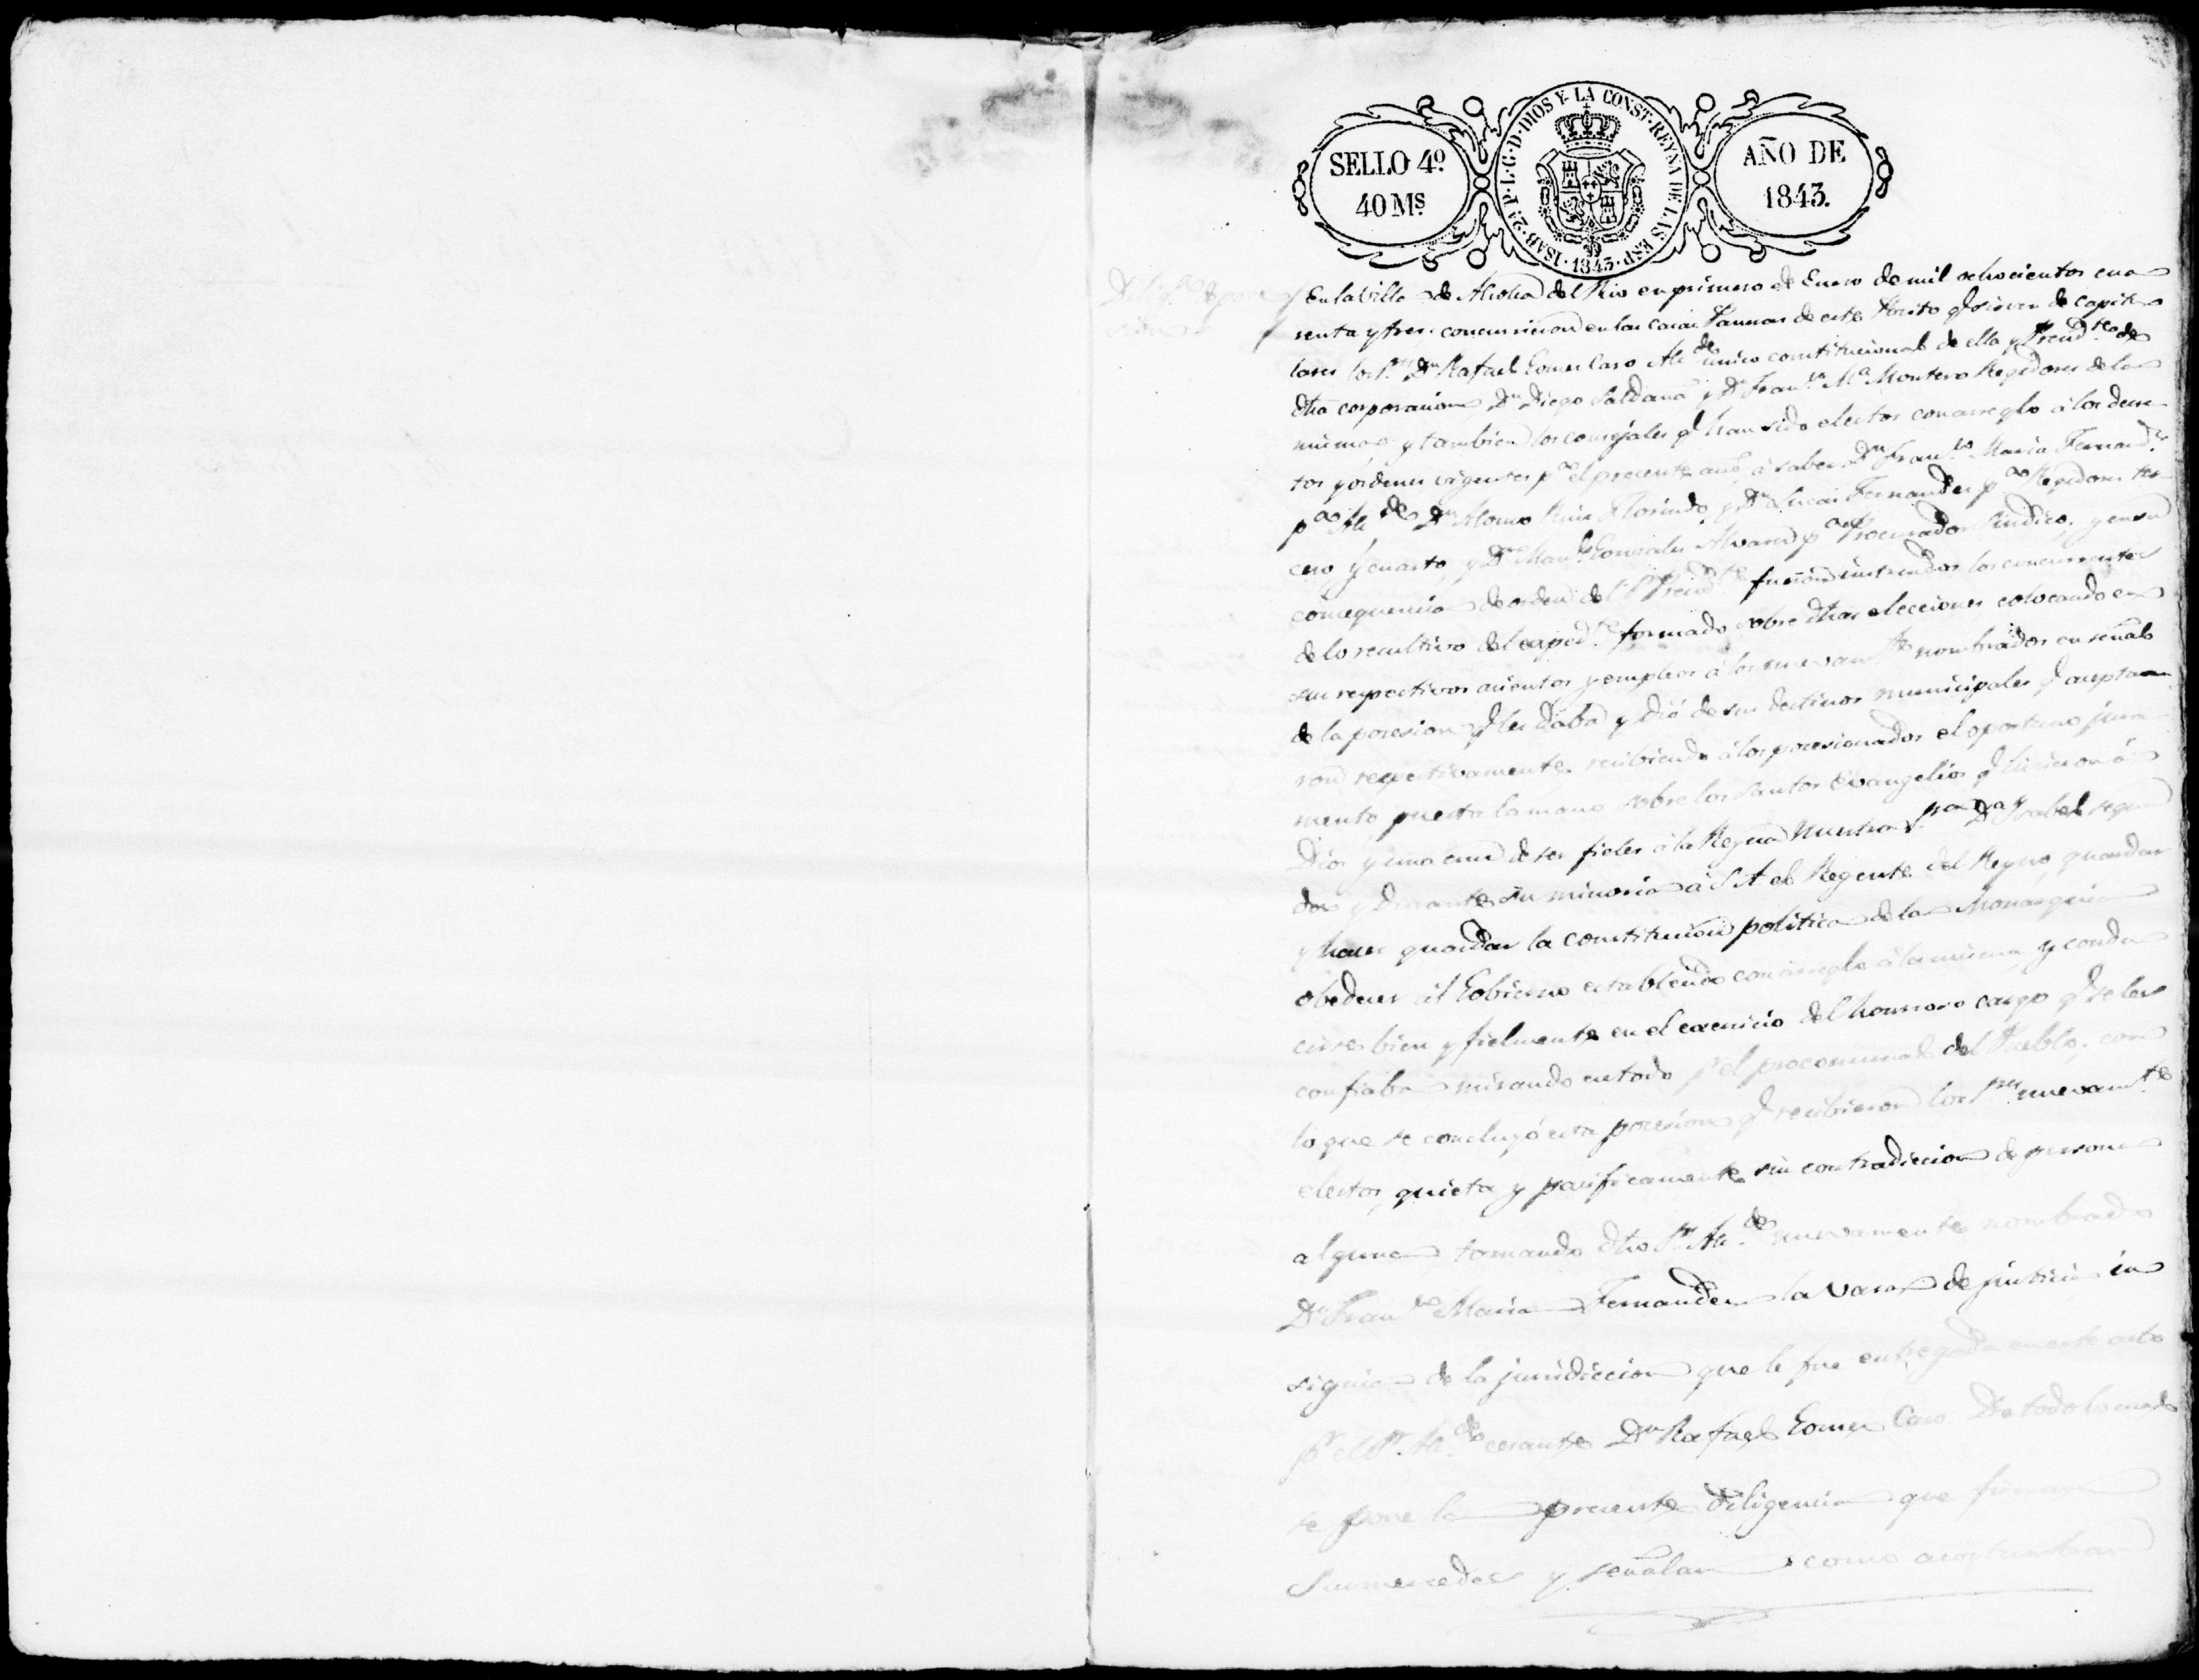 SELLO 4º
40 Mˢ
ISAB. 2ª P. L. G. D. DIOS Y LA CONST. REYNA DE LAS ESP. 1843.
AÑO DE
1843.
Diligª de pose
sion
En la Villa de Alcolea del Rio en primero de Enero de mil ochocientos cua
renta y tres: concurrieron en las casas Pannas de este Posito q sirven de capitu
lares los Sres Dn Rafael Gomez Caro Alcde unico constitucional de ella y Presidte de
dha corporacion, Dn Diego Saldaña y Dn Franco Mª Montero Regidores de la
misma, y tambien los consejales q han sido electos con arreglo á los decre
tos y órdenes vigentes pª el presente año, á saber Dn Franco Maria Fernandz
pª Alcde Dn Alonso Ruiz Florindo, y Dn Lucas Fernandez pª Regidores ter
cero y cuarto, y Dn Manl Gonzalez Alvarez pª Procurador Sindico, y en su
consequencia de orden del Sr Presidte fueron instruidos los concurrentes
de lo resultivo del expedte formado sobre dhas elecciones colocando en
sus respectivos asientos y empleos á los nuevamte nombrados en señal
de la posesion q les daba y dió de sus destinos municipales q aceptaron
respectivamente, recibiendo á los posesionados el oportuno jura
mento puesta la mano sobre los Santos Evangelios q hicieron á
Dios y una cruz de ser fieles á la Reyna Nuestra Sra Dª Ysabel segun
da y durante su minoria á S A el Regente del Reyno, guardar
y hacer guardar la constitucion politica de la Monarquia
obedecer al Gobierno establecido con arreglo á la misma, y condu
cirse bien y fielmente en el exercicio del honrroso cargo q se les
confiaba mirando en todo pr el procomunal del Pueblo. con
lo que se concluyó esta posesion q recibieron los Sres nuevamte
electos, quieta y pacificamente sin contradiccion de persona
alguna tomando dho Sr Alcde nuevamente nombrado
Dn Franco Maria Fernandez la vara de justicia in
signia de la jurisdiccion que le fue entregada en este acto
pr el Sr Alcde cesante Dn Rafael Gomez Caro. De todo lo cual
se pone la presente diligencia que firman
Sus mercedes y señalan como acostumbran